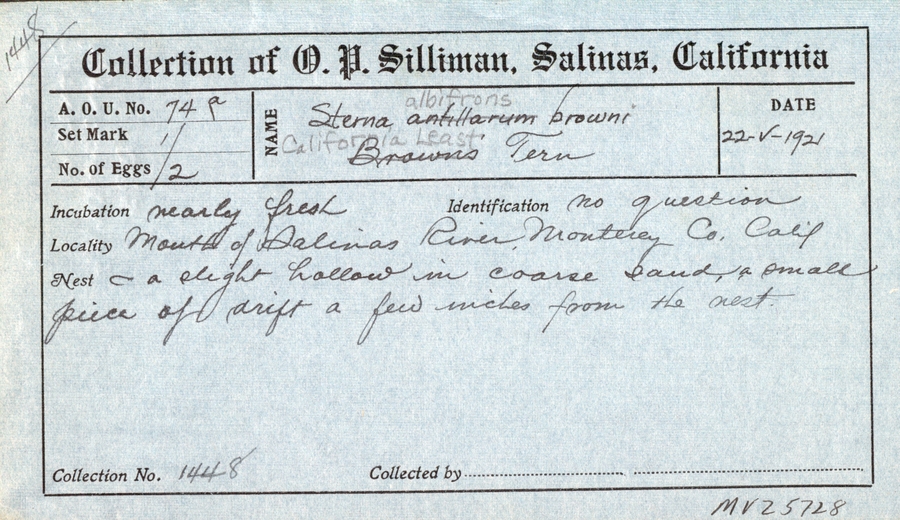 1448
Collection of O. P. Silliman, Salinas, California
A. O. U. No. 74 a
Set Mark 1/
No. of Eggs /2
NAME
albifrons
Sterna antillarum browni
California Least
Browns Tern
DATE
22-V-1921
Incubation nearly fresh Identification no question
Locality Mouth of Salinas River, Monterey Co. Calif
Nest - a slight hollow in coarse sand, a small
piece of drift a few inches from the nest.
Collection No. 1448 Collected by
MVZ 5728